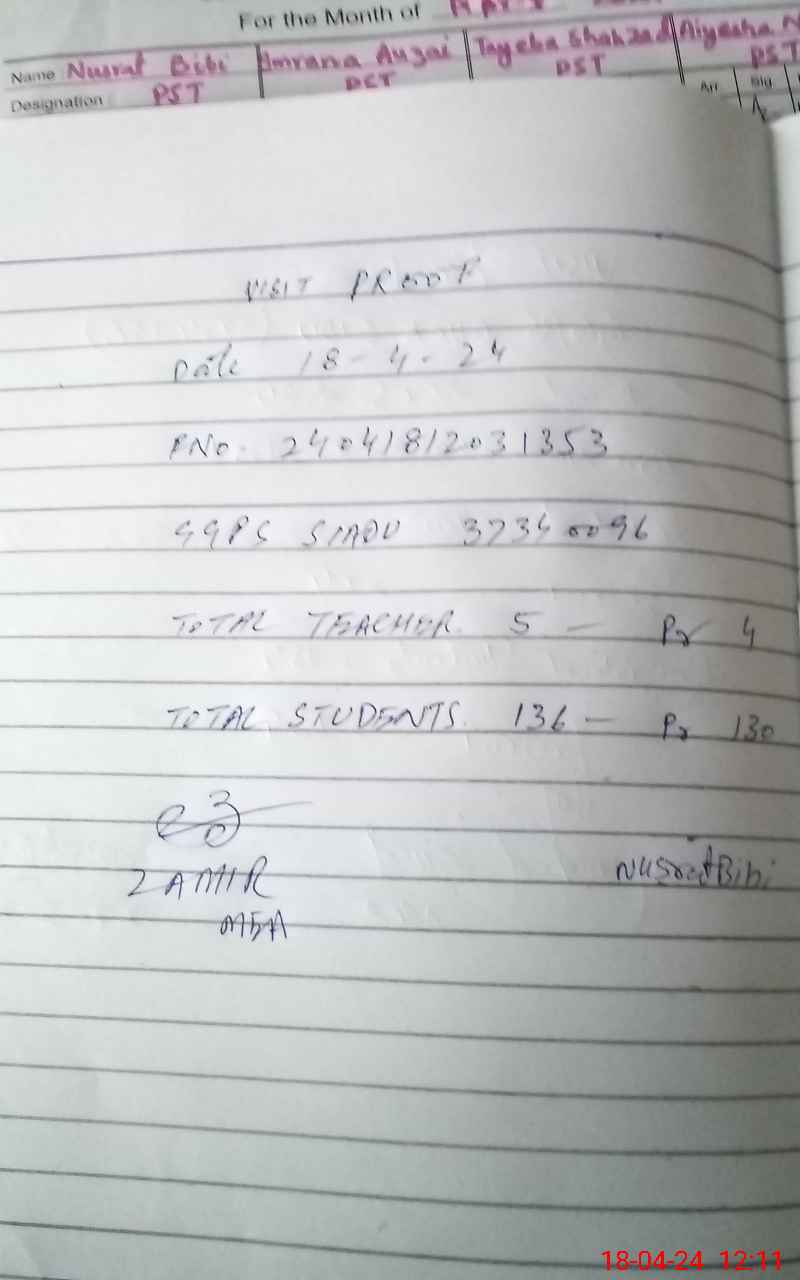 For the Month of
Name Nusrat Bibi Imrana Auzai Tayeba Shahzad Aiyesha N
Designation PST PST PST PST
Arr Sig
VISIT PROOF
Date 18-4-24
PNo. 24041812031353
GGPS SIADU 37340096
TOTAL TEACHER. 5 — Pr 4
TOTAL STUDENTS. 136 — Pr 130
ZAMIR NusratBibi
MEA
18-04-24 12:11